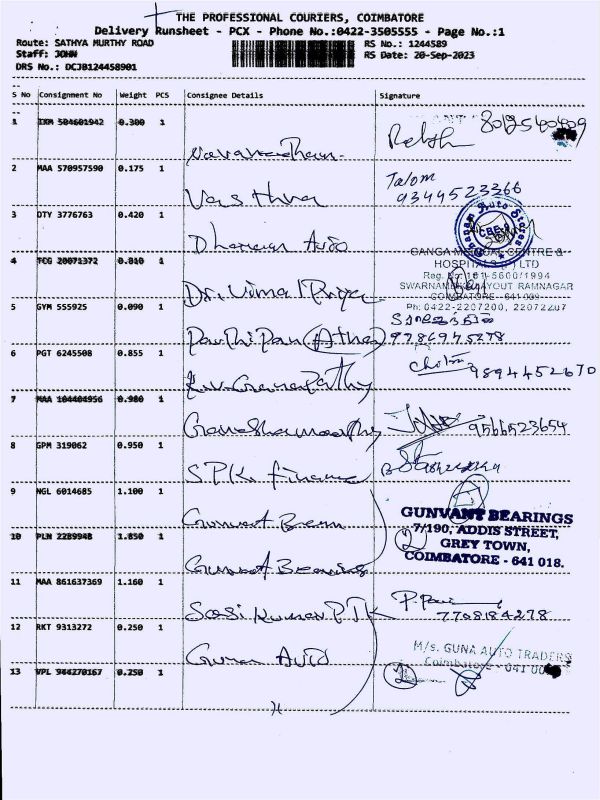 THE PROFESSIONAL COURIERS, COIMBATORE
Delivery Runsheet - PCX - Phone No.:0422-3505555 - Page No.:1
Route: SATHYA MURTHY ROAD
RS No.: 1244589
Staff: JOHN
RS Date: 20-Sep-2023
DRS No.: DCJ0124458901
S No Consignment No Weight PCS Consignee Details Signature
1 IXM 504601942 0.300 1
8012540409
2 MAA 570957590 0.175 1
Vasthra
9344523366
3 DTY 3776763 0.420 1 Dhanam Auto
Dhanam Auto Stores
CBE-9
4 TCG 20071372 0.810 1 Dr. Vimal
GANGA MEDICAL CENTRE &
HOSPITALS (P) LTD
Reg. No 181-5600/1994
SWARNAMBIGA LAYOUT RAMNAGAR
COIMBATORE - 641 009
Ph: 0422-2207200, 2207220
5 GYM 555925 0.090 1 Parthipan (Athar)
9786945278
6 PGT 6245508 0.855 1 Ganapathy
9894452670
7 MAA 104404956 0.980 1 Ganeshamoorthy
9566523654
8 GPM 319062 0.950 1 S.P.K. finance
9 NGL 6014685 1.100 1 Gunvant Bearin
GUNVANT BEARINGS
7/190, ADDIS STREET,
GREY TOWN,
COIMBATORE - 641 018.
2
10 PLN 2289948 1.850 1 Gunvant Bearings
11 MAA 861637369 1.160 1 Sasi Kumar PTK
7708184278
12 RKT 9313272 0.250 1 Guna Auto
M/s. GUNA AUTO TRADERS
Coimbatore - 641 00
13 VPL 944270167 0.250 1
2